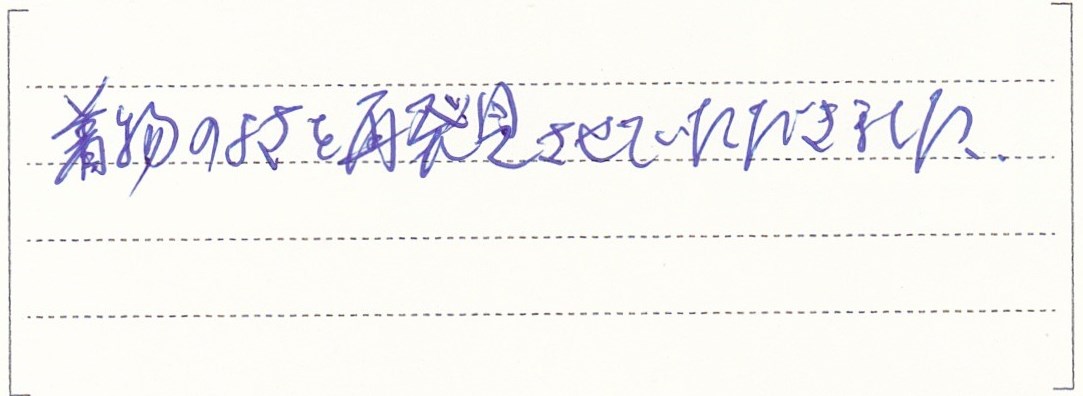 着物のよさを再発見させていただきました.